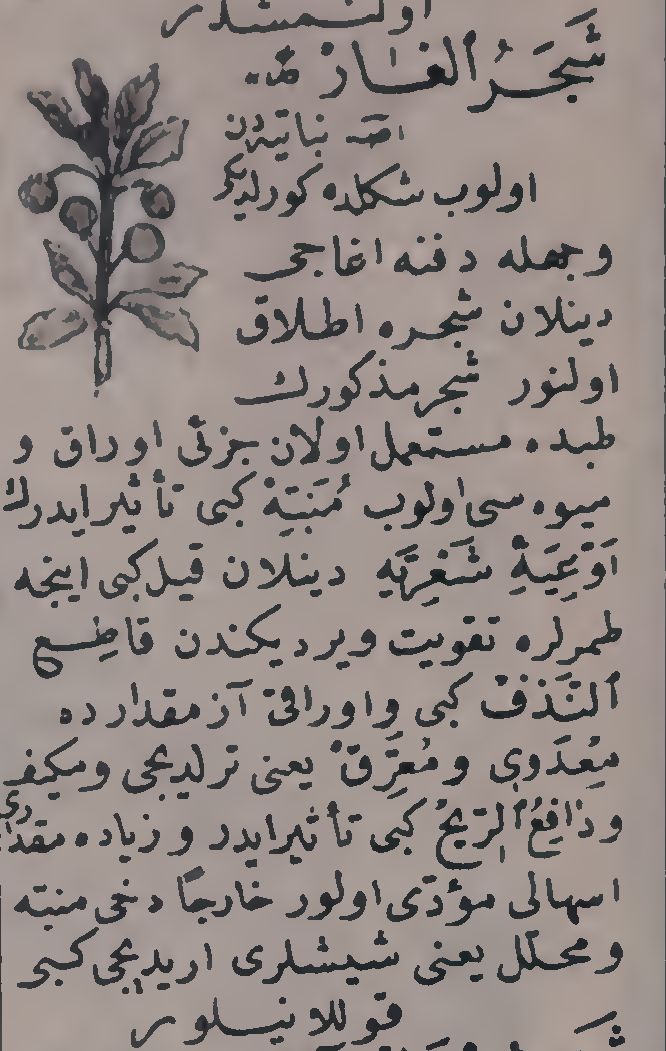 اولنمشلدر
شَجَرُ الغار
نباتیدن
اولوب شکلده کورلدیکی
وجمله دفنه اغاجی
دینلان شجره اطلاق
اولنور شجر مذکورك
طبده مستعمل اولان جزئی اوراق و
میوه سی اولوب مُنَبِّهْ کبی تأثیر ایدرك
اَوْعِیَهٔ شَعْرِیَّه دینلان قیل کبی اینجه
طمرلره تقویت ویردیکندن قاطِع
اَلنَّذْفْ کبی واوراقی آز مقدارده
مِعْدَوِی ومُعَرِّقْ یعنی ترلدیجی ومکیف
ودَافِعُ الرّیحْ کبی تأثیر ایدر و زیاده مقداری
اسهالی مؤدّی اولور خارجًا دخی منبّه
ومحلّل یعنی شیشلری اریدیجی کبی
قوللانیلور